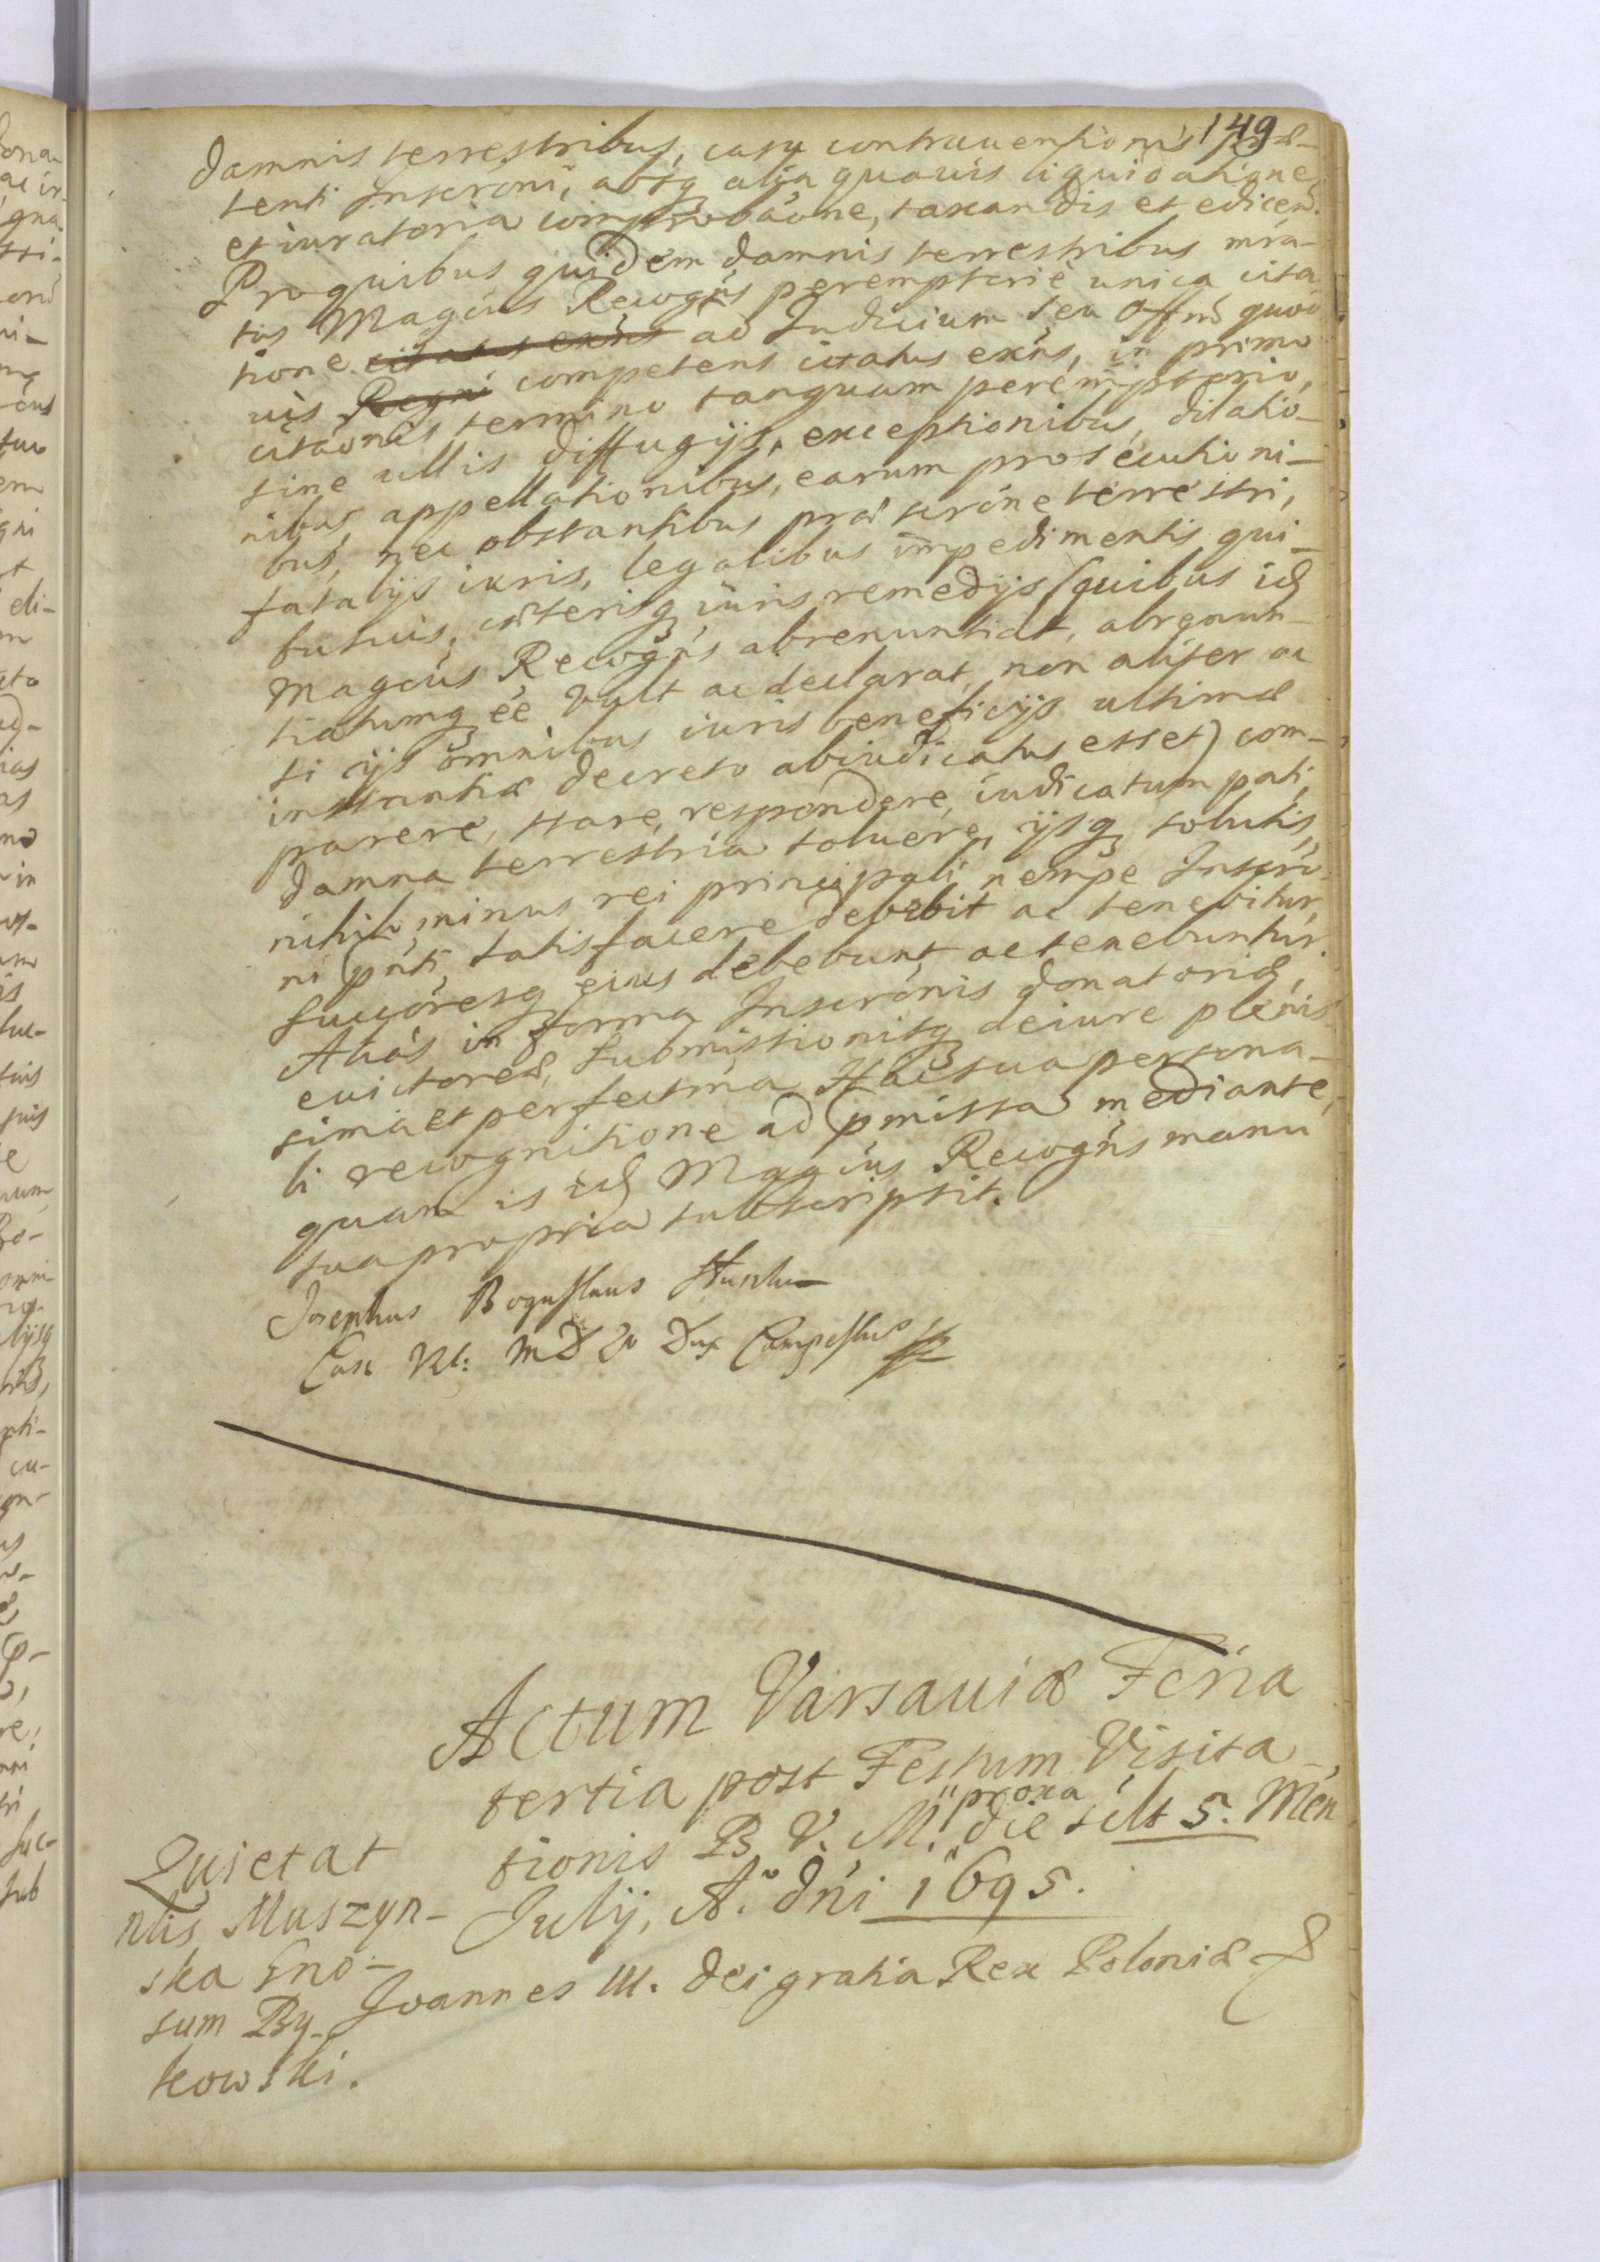 149
damnis terrestribus, casu contrauentionis præ-
tenti Inscr̃oni, absq̨ alia quauis liquidatione
et iuratoria comprobãone, taxandis et edicen̄.
Pro quibus quidem damnis terrestribus mr̃a-
tus Magc̃us Recogñs peremptorie unica cita-
tione citatus exñs ad Judicium seu Offm̃ quod
uis Regni competens citatus exñs, in primo
citãonis termino tanquam peremptorio,
sine ullis diffugijs, exceptionibus, dilatio-
nibus, appellationibus, earum prosecutioni-
bus, nec obstantibus præscr̃õne terrestri,
fatalijs iuris, legalibus impedimentis qui-
busuis, cæterisq̨ iuris remedijs (quibus id̃
Magc̃us Recogñs abrenuntiat, abrenun-
tiatumq̨ ẽe vult ac declarat, non aliter ac
si ijs omnibus iuris beneficijs ultimæ
instantiæ decreto abiudicatus esset) com-
parere, stare, respondere, iudicatum pati,
damna terrestria soluere, ijsq̨ solutis,
nihilominus rei principali nempe Inscr̃o-
ni pñti, satisfacere debebit ac tenebitur,
succoresq̨ eius debebunt, ac tenebuntur.
Aliãs in forma Inscr̃õnis donatoriæ,
euictoreæ, submissionisq̨ de iure plenis-
sima et perfectm̃a. Hac sua persona-
li recognitione ad p̃missa mediante,
quam is id̃ Magc̃us Recogñs manu
sua propria subscripsit.
Josephus Boguslaus Slusz
Cast. Vil: M D L Dux Campestris
Actum Varsauiæ Feria
tertia post Festum Visita-
tionis B. V. M. "proxa die scilt 5. Men
July, A.º dñi 1695.
Quietat
Muszyn-
ska Gno-
sum By-
kowski.
Joannes III. Dei gratia Rex Poloniæ &